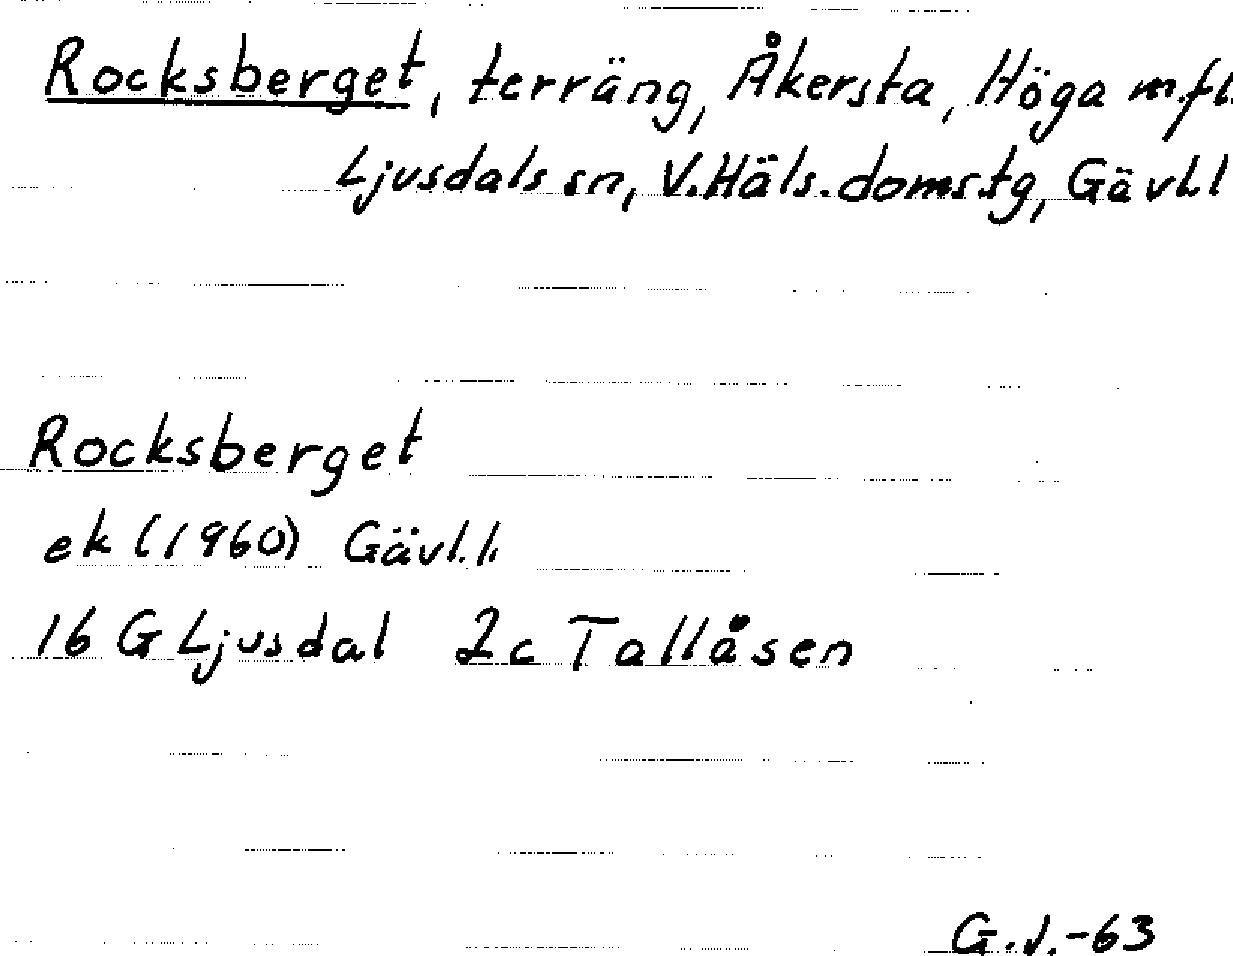 Rocksberget, terräng, Åkersta, Höga m.fl.
Ljusdals sn, V.Häls.domstg, Gävl.l
Rocksberget
ek (1960) Gävl.l.
16 G Ljusdal 2c Tallåsen
G.J.-63